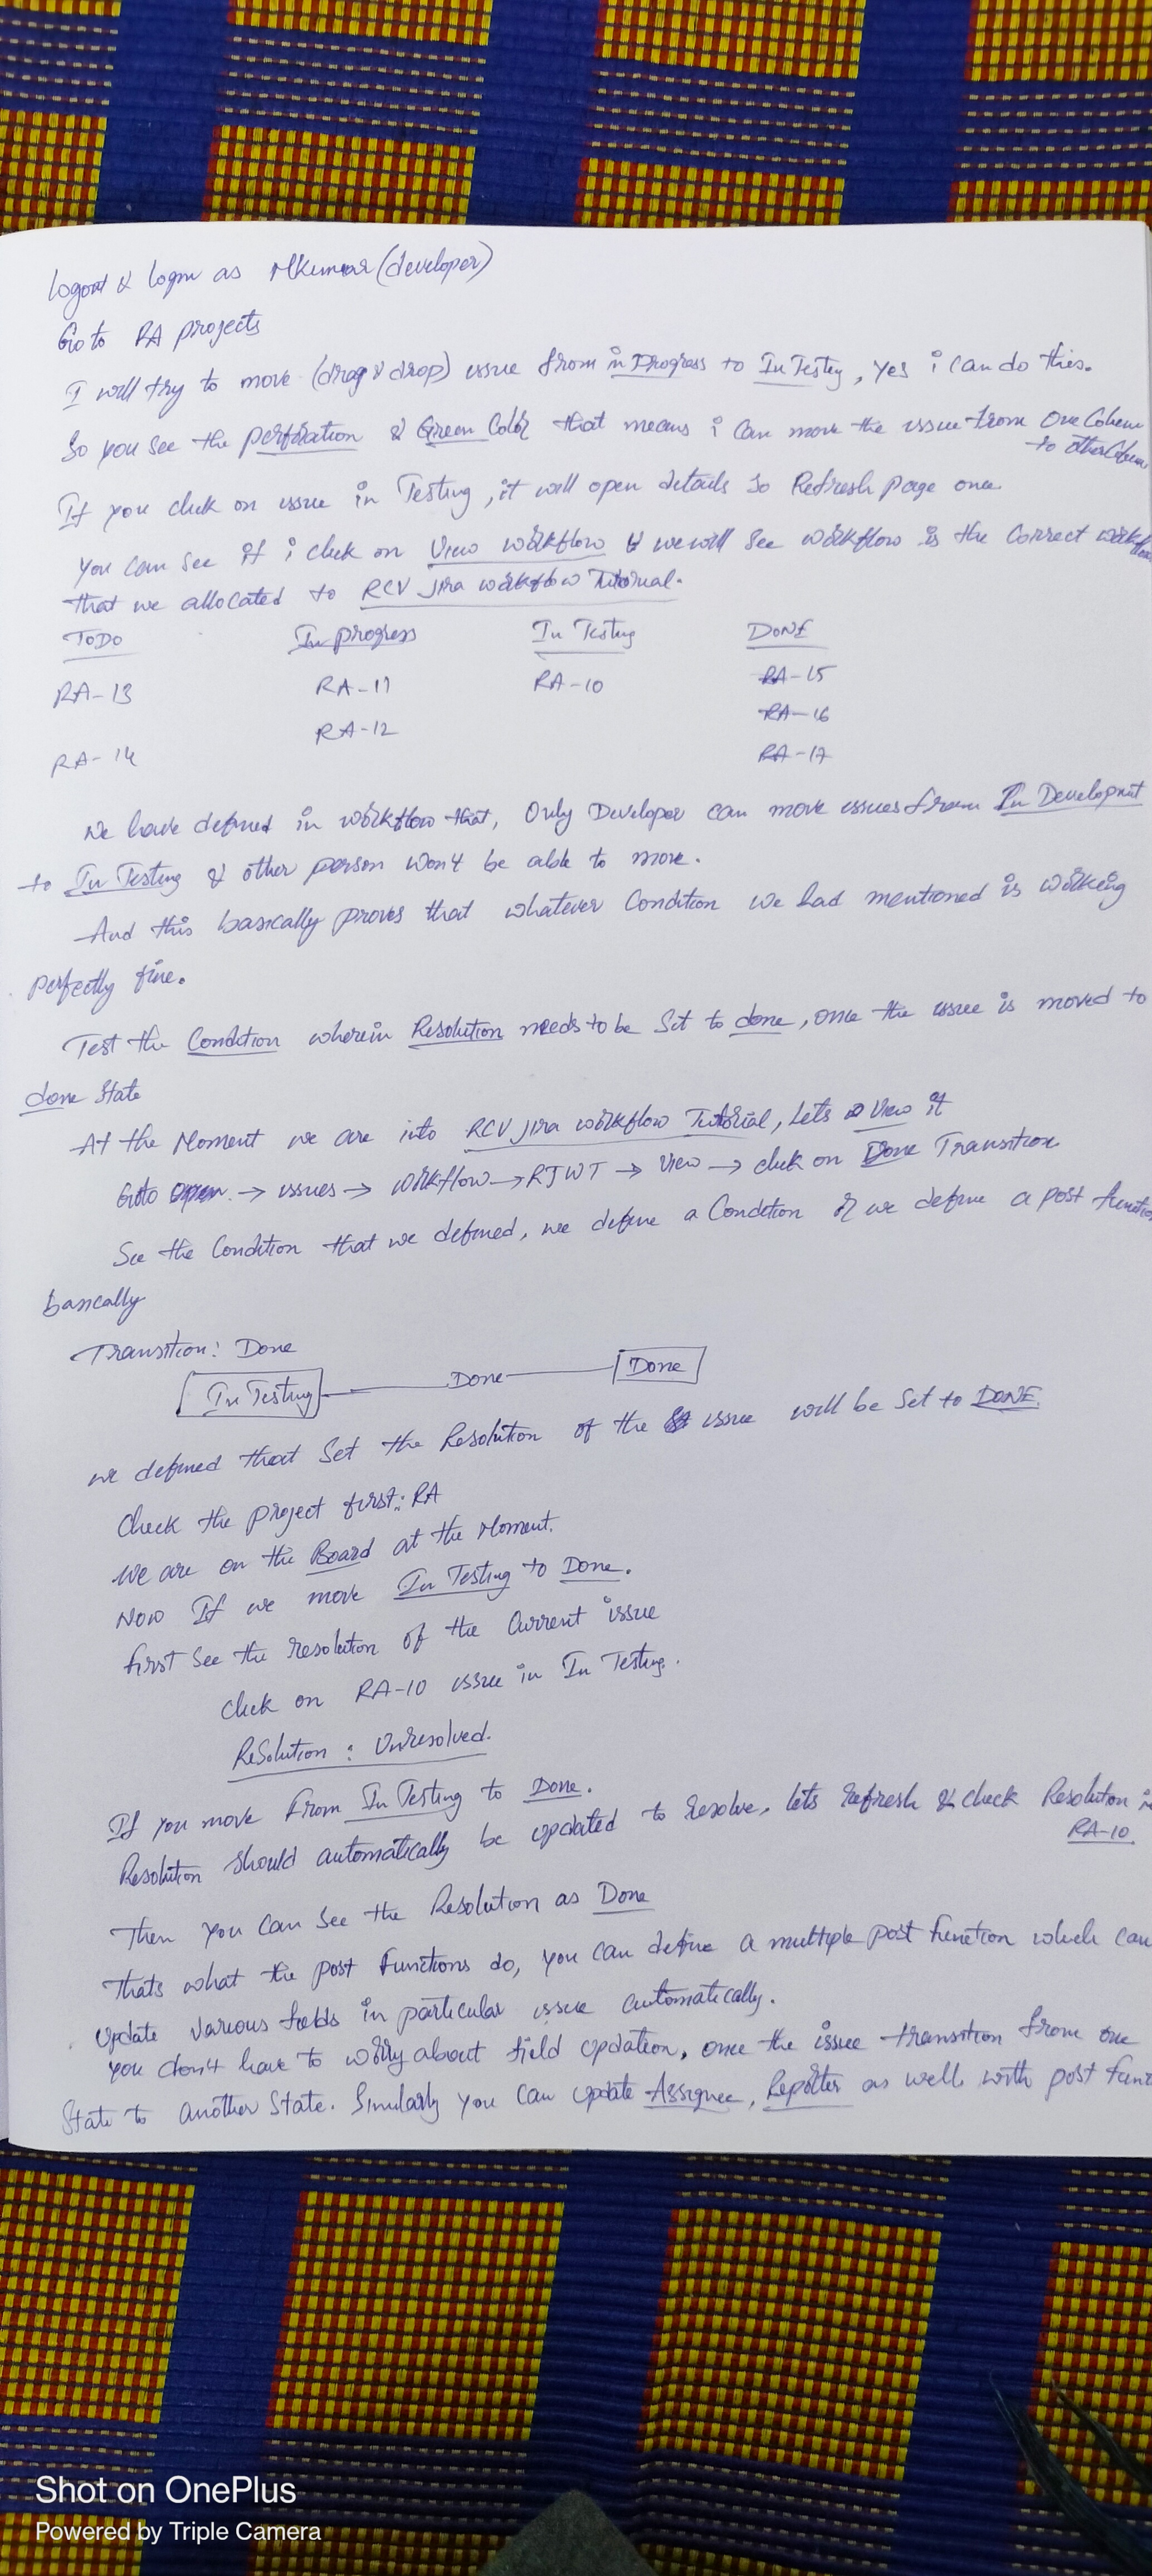 Logout & Login as Mkumar (developer)
Go to RA projects
I will try to move (drag & drop) issue from in Progress to In Testing, Yes i can do this.
So you see the perforation & Green Color that means i can move the issue from One Column
to other Column
If you click on issue in Testing, it will open details so Refresh page once
You can see if i click on View workflow & we will see workflow is the Correct workflow
that we allocated to RCV Jira workflow Tutorial.
TODO In progress In Testing DONE
RA-13 RA-11 RA-10 RA-15
RA-12 RA-16
RA-14 RA-17
We have defined in workflow that, Only Developer can move issues from In Development
to In Testing & other person won't be able to move.
And this basically proves that whatever Condition we had mentioned is working
perfectly fine.
Test the Condition wherein Resolution needs to be Set to done, once the issue is moved to
done State
At the Moment we are into RCV Jira workflow Tutorial, Lets View it
Goto → issues → workflow → RJWT → View → click on Done Transition
See the Condition that we defined, we define a Condition & we define a post function
basically
Transition: Done
In Testing Done Done
we defined that Set the Resolution of the issue will be Set to DONE.
Check the project first: RA
We are on the Board at the Moment.
Now If we move In Testing to Done.
first See the resolution of the Current issue
click on RA-10 issue in In Testing.
Resolution : Unresolved.
If you move From In Testing to Done.
Resolution should automatically be updated to resolve, lets Refresh & check Resolution in
RA-10.
Then you can See the Resolution as Done
Thats what the post Functions do, you can define a multiple post function which can
update various fields in particular issue automatically.
you don't have to worry about field updation, once the issue transition from one
State to another State. Similarly you can update Assignee, Reporter as well with post func
Shot on OnePlus
Powered by Triple Camera